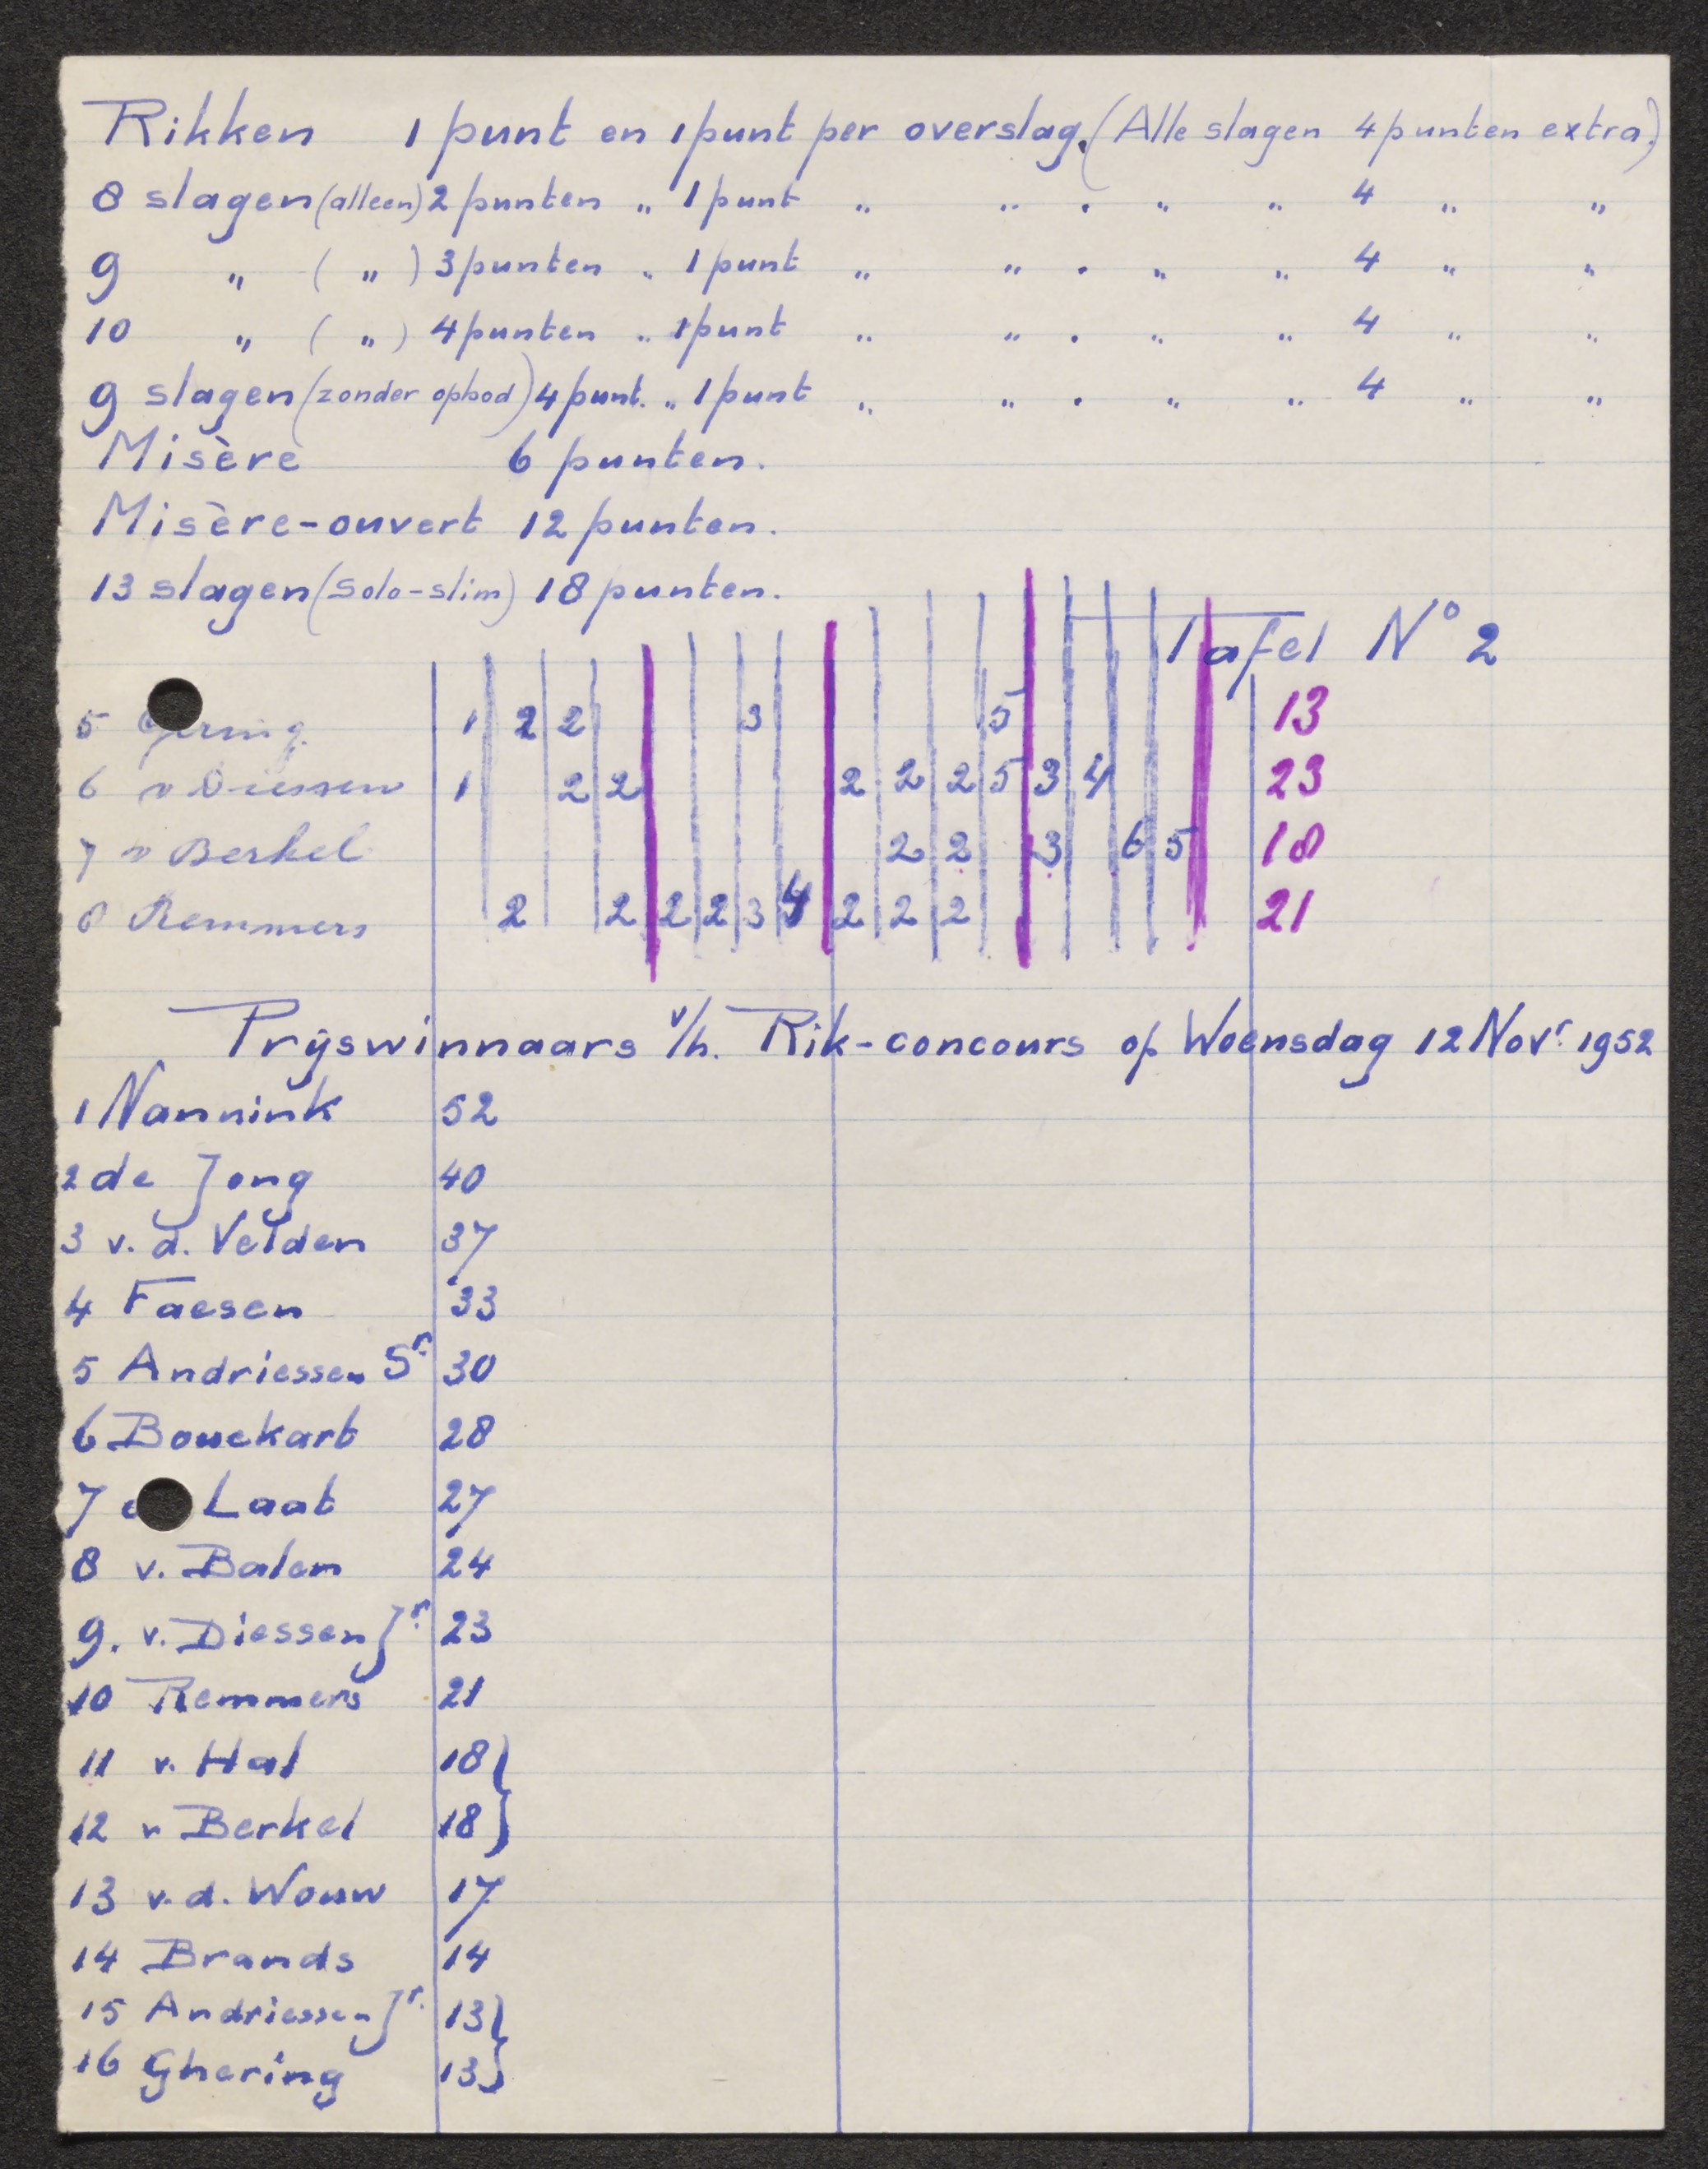 Rikken 1 punt en 1 punt per overslag. (Alle slagen 4 punten extra.)
8 slagen (alleen) 2 punten „ 1 punt „ „ . „ „ 4 „ „
9 „ ( „ ) 3 punten „ 1 punt „ „ . „ „ 4 „ „
10 „ ( „ ) 4 punten „ 1 punt „ „ . „ „ 4 „ „
9 slagen (zonder opbod) 4 punt. „ 1 punt „ „ . „ „ 4 „ „
Misère 6 punten.
Misère-ouvert 12 punten.
13 slagen (Solo-slim) 18 punten.
Tafel No 2
5 1 2 2 3 5 13
6 v Diessen 1 2 2 2 2 2 5 3 4 23
7 v Berkel 2 2 3 6 5 18
8 Remmers 2 2 2 2 3 4 2 2 2 21
Prijswinnaars v/h. Rik-concours op Woensdag 12 Novr. 1952
1 Nannink 52
2 de Jong 40
3 v. d. Velden 37
4 Faesen 33
5 Andriessen Sr. 30
6 Bouckart 28
7 Laat 27
8 v. Balen 24
9. v. Diessen Jr. 23
10 Remmers 21
11 v. Hal 18}
12 v Berkel 18}
13 v. d. Wouw 17
14 Brands 14
15 Andriessen Jr. 13}
16 Ghering 13}